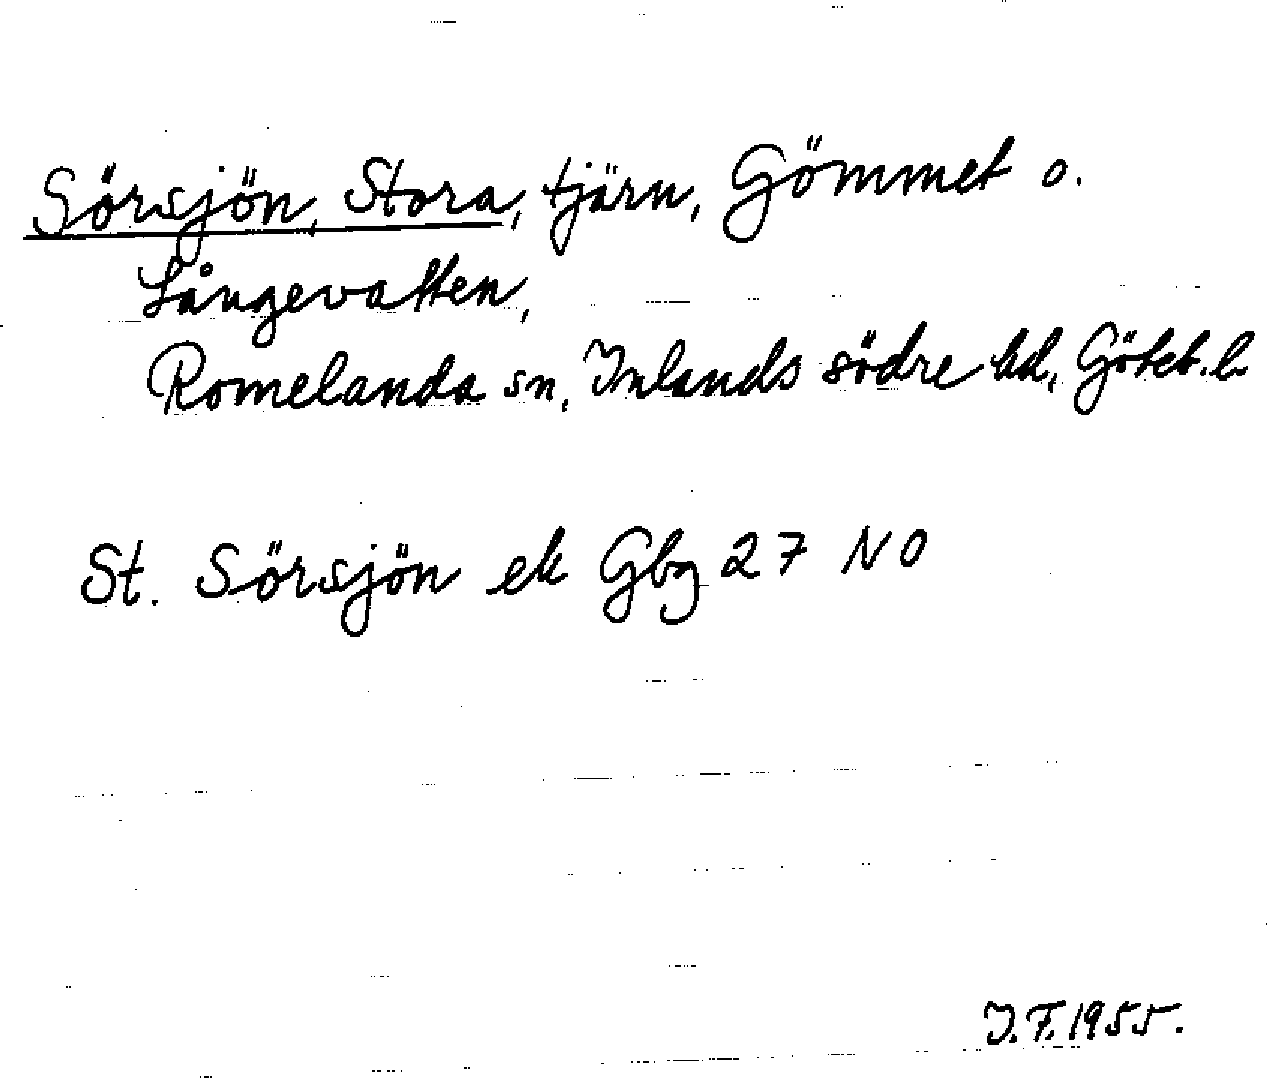 Sörsjön, Stora, tjärn, Gömmet o.
Långevatten,
Romelanda sn, Inlands södre hd, Göteb. l.
St. Sörsjön ek Gbg 27 NO
I.F. 1955.